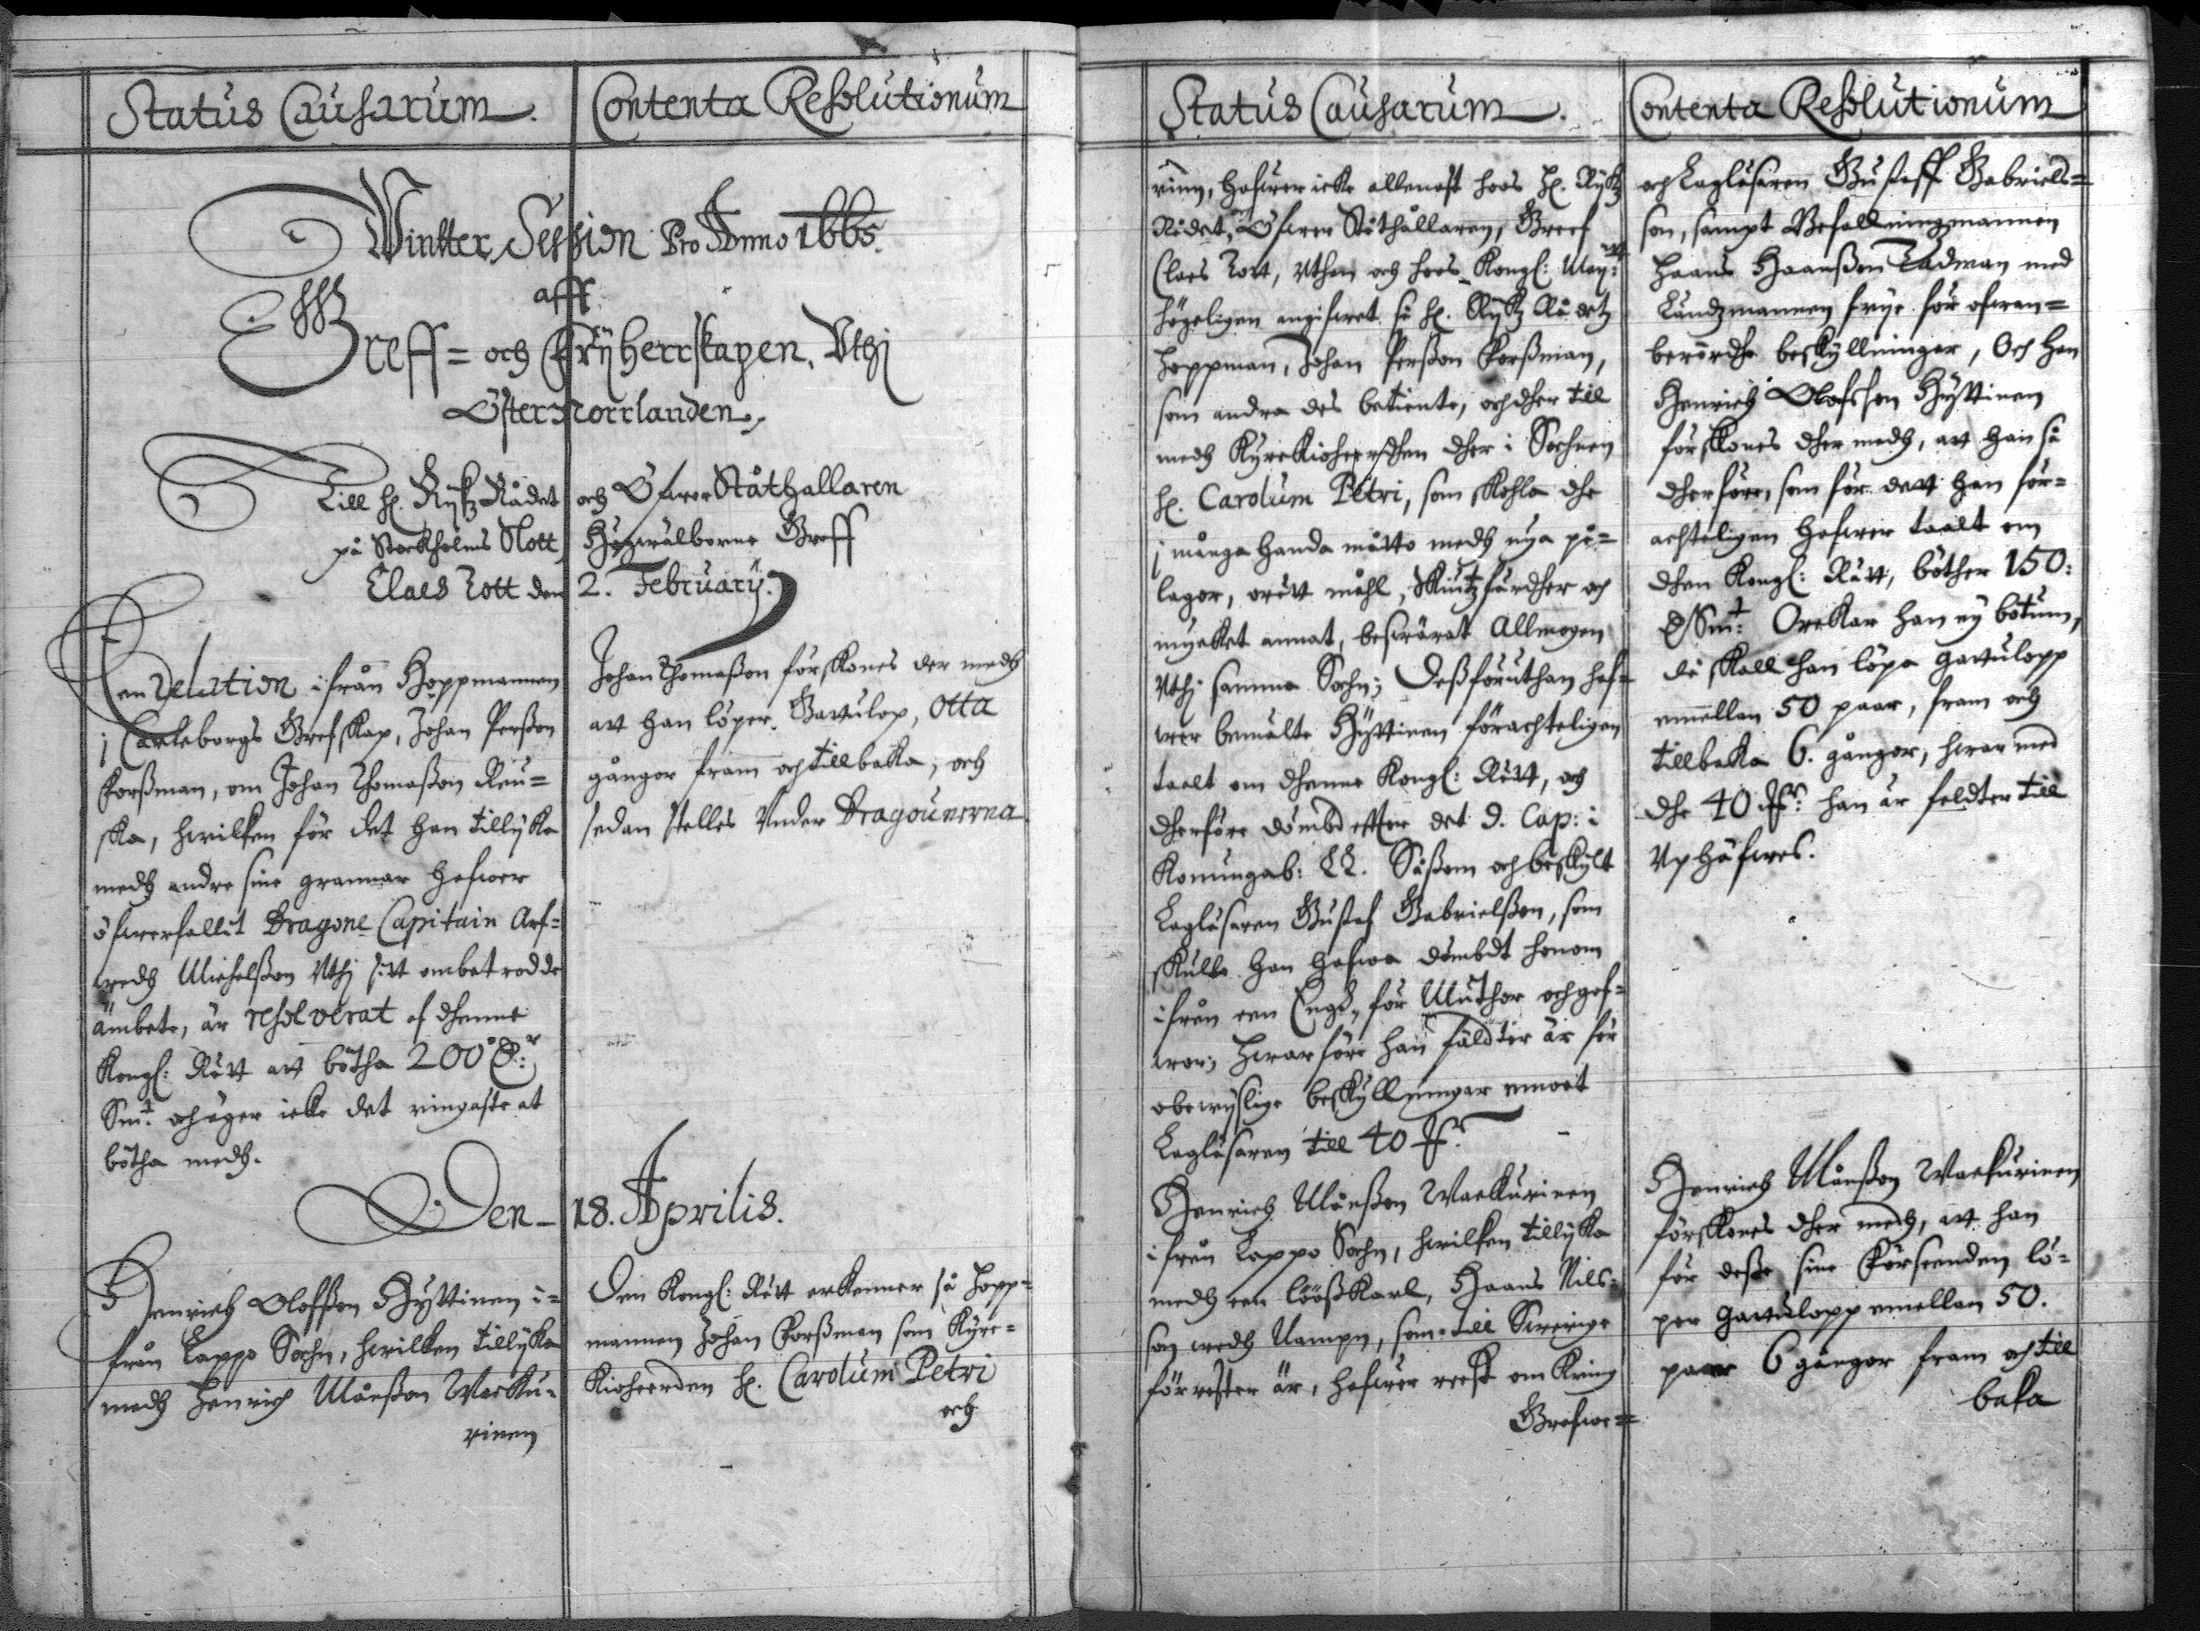 Status Causarum.
Contenta Resolutionum
Wintter Session Pro Anno 1665.
aff
Greff= och Frijherrskapen, Vthj
Östernorrlanden,
Till H. Rijkz Rådet och Öfwer Ståthållaren
på Stockholms Slott, Högwälborne Greff
Claes Tott den 2. Februarij.
Een Relation ifrån Hoppmannen
j Carleborgs Grefskap, Johan Perßon
Forßman, om Johan Thomaßon Reu=
ska, hwilken för det han tillijka
medh andre sine grannar hafwer
öfwerfallit Dragone Capitain Arf=
wedh Michelßon Vthj sitt ombetrodde
ämbete, är resolverat af dhenne
Kongl: Rätt att bötha 200 D:r
Smt: och äger icke det ringaste at
bötha medh.
Johan Thomaßon förskones der medh
att han löper Gatulop, otta
gångor fram och tillbaka, och
sedan stelles Vnder Dragounerna.
Den 18. Aprilis.
Henrich Olofßon Hyttinen i=
från Lappo Sochn, hwilken tillijka
medh Henrich Månßon Wacku=
rinen
Den Kongl: Rätt erkenner så Hopp=
mannen Johan Forßman som Kyrc=
kioheerden H. Carolum Petri
och
Status Causarum.
Contenta Resolutionum
rinen, hafwer icke allenast hoos H. Rijkz
Rådet, Öfwer Ståthållaren, Greef
Claes Tott, Vthan och hoos Kongl: May:tt
högeligen angifwet så H. Rijkz Rådetz
Hoppman, Johan Perßon Forßman,
som andra des betiente, och dher till
medh Kyrckioheerdhen dher i Sochnen
H. Carolum Petri, som skohla dhe
j många handa måtto medh nya på=
lagor, orätt måhl, skiutzfärdher och
myckket annat, beswärat Allmogen
Vthj samma Sochn; Deßföruthan haf=
wer bemälte Hyttinen förachteligen
taalt om dhenne Kongl: Rätt, och
dherföre dömbd efter det 9. Cap: i
Konungab: LL. Såßom och beskylt
Lagläsaren Gustaf Gabrielßon, som
skulle han hafwa dömbdt honom
ifrån een Engh, för Muthor och gåf=
wor; hwarföre han fäldter är för
obewyslige beskyllningar emoot
Lagläsaren till 40 mk:r
Henrich Månßon Wackurinen
ifrån Lappo Sochn, hwilken tillijka
medh een löößkarl, Haans Nils=
son wedh Nampn, som till Swerige
förrester är, hafwer reest om kring
Grefwe=
och Lagläsaren Gustaff Gabriels=
son, sampt Befallningzmannen
Haans Haanßon Tadman med
Ländzmannen frye för ofwan=
berördhe beskyllningar, Och han
Henrich Olofsson Hyttinen
förskones dher medh, att han så
dherföre, som för dett han för=
achteligen hafwer taalt om
dhen Kongl: Rätt, böther 150:
D Smt: Orckar han ey bötum,
då skall han löpa gatulopp
emellan 50 paar, fram och
tillbaka 6. gångor, hwar med
dhe 40 mk:r han är feldter till
Vphäfwes.
Henrich Månßon Wackurinen
förskones dher medh, att han
för deße sine Förseenden lö=
per gatulopp emellan 50.
paar 6 gångor fram och till
baka